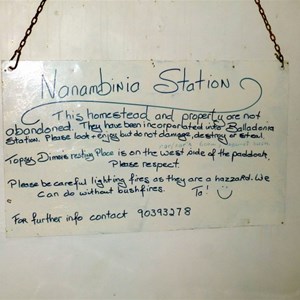 Nanambinia Station
This homestead and property are not
abandoned. They have been incorporated into Balladonia
Station. Please look & enjoy but do not damage, destroy or steal.
Topsy Dimers resting Place is on the west side of the paddock.
Please respect.
Please be careful lighting fires as they are a hazzard. We
can do without bushfires. Ta!
For further info contact 90393278